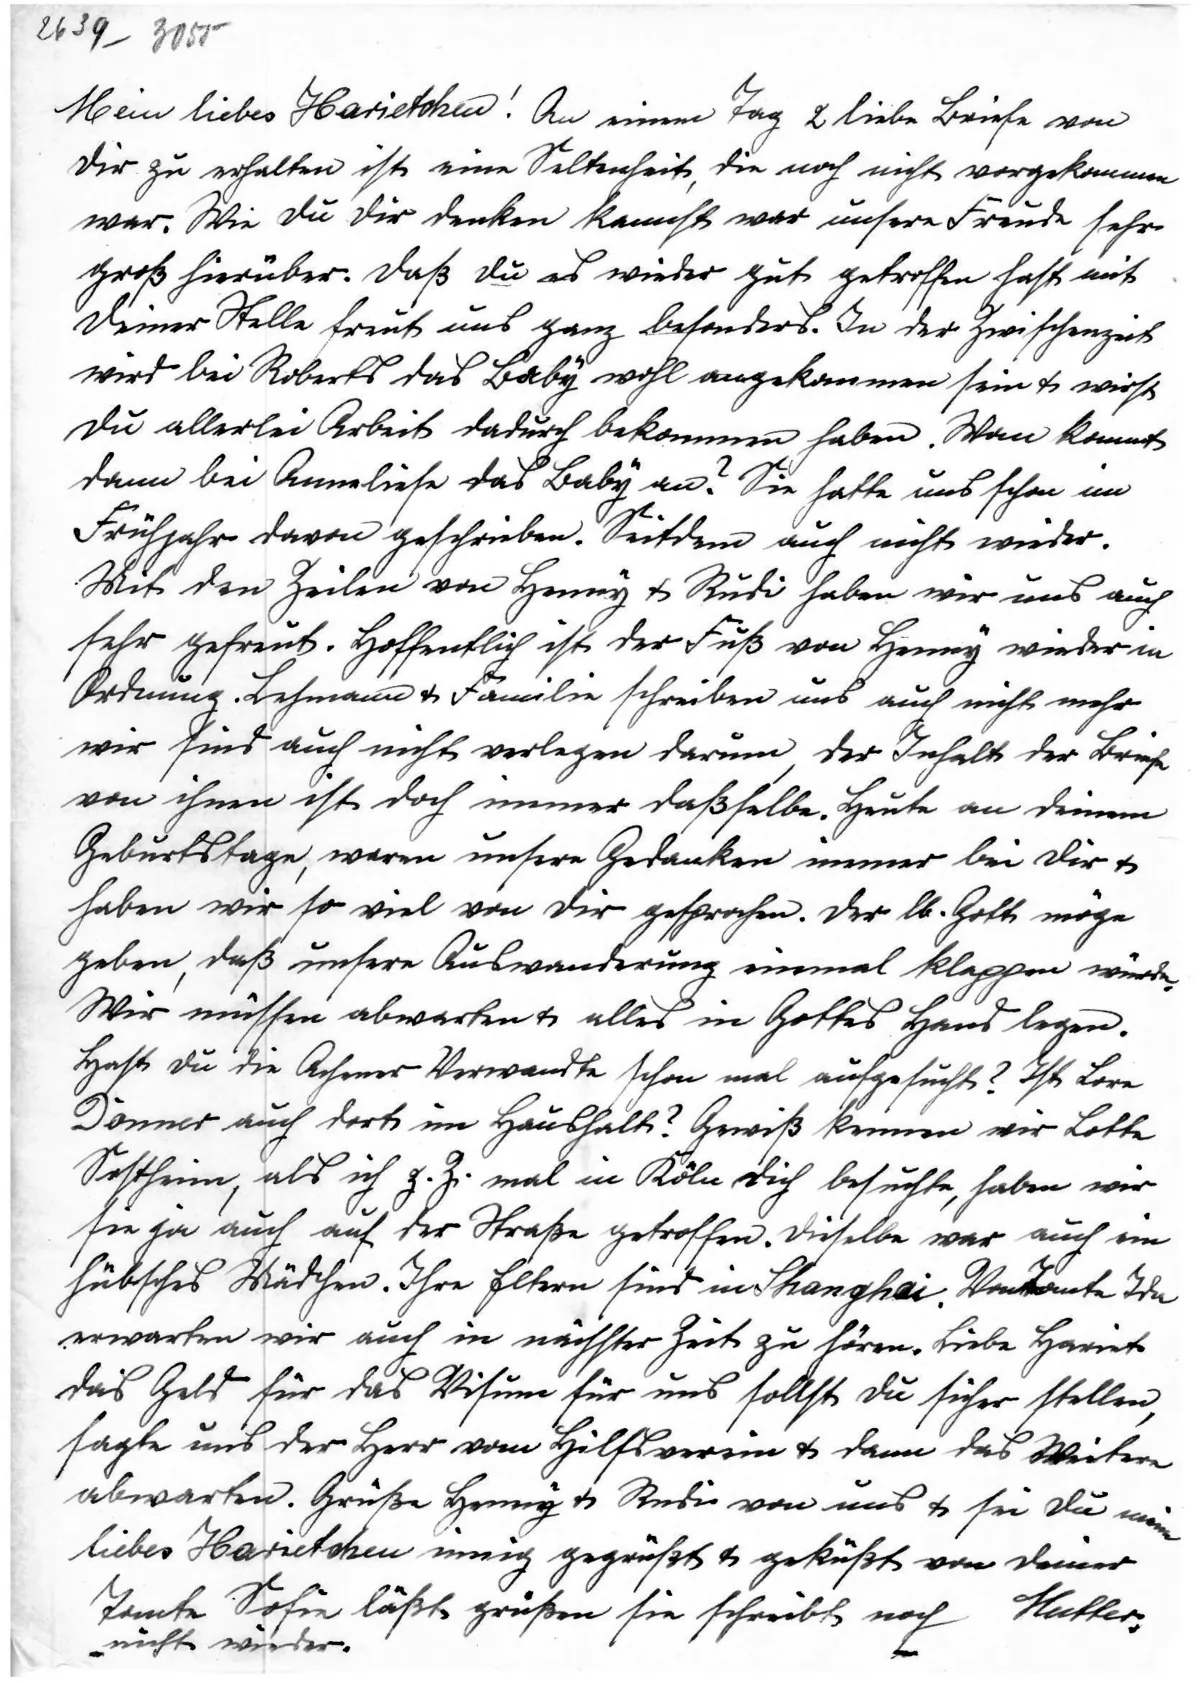 2639 – 3055
Mein liebes Harietchen! An einem Tag 2 liebe Briefe von
Dir zu erhalten ist eine Seltenheit, die noch nicht vorgekommen
war. Wie Du Dir denken kannst war unsere Freude sehr
groß hierüber. Daß Du es wieder gut getroffen hast mit
Deiner Stelle freut uns ganz besonders. In der Zwischenzeit
wird bei Roberts das Baby wohl angekommen sein & wirst
Du allerlei Arbeit dadurch bekommen haben. Wann kommt
dann bei Anneliese das Baby an? Sie hatte uns schon im
Frühjahr davon geschrieben. Seitdem auch nicht wieder.
Mit den Zeilen von Henny & Rudi haben wir uns auch
sehr gefreut. Hoffentlich ist der Fuß von Henny wieder in
Ordnung. Lehmann & Familie schreiben uns auch nicht mehr
wir sind auch nicht verlegen darum, der Inhalt der Briefe
von ihnen ist doch immer daßselbe. Heute an deinem
Geburtstage, waren unsere Gedanken immer bei Dir &
haben wir so viel von Dir gesprochen. Der lb. Gott möge
geben, daß unsere Auswanderung einmal klappen würde.
Wir müssen abwarten & alles in Gottes Hand legen.
Hast Du die Achener Verwandte schon mal aufgesucht? Ist Lore
Danner auch dort im Haushalt? Gewiß kennen wir Lotte
Sostheim, als ich z. Z. mal in Köln Dich besuchte, haben wir
sie ja auch auf der Straße getroffen. Dieselbe war auch ein
hübsches Mädchen. Ihre Eltern sind in Shanghai. Von Tante Ida
erwarten wir auch in nächster Zeit zu hören. Liebe Hariet
das Geld für das Visum für uns sollst Du sicher stellen,
sagte uns der Herr vom Hilfsverein & dann das Weitere
abwarten. Grüße Henny & Rudi von uns & sei Du mein
liebes Harietchen innig gegrüßt & geküßt von Deiner
Tante Sofie läßt grüßen sie schreibt noch Mutter.
nicht wieder.